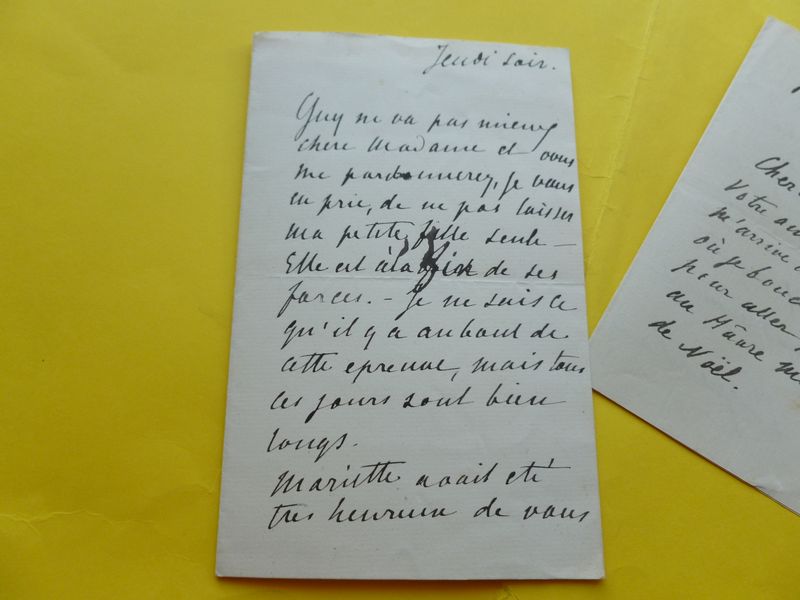 Jeudi soir.
Guy ne va pas mieux
chere Madame et vous
me pardonnerez, je vous
en prie, de ne pas laisser
ma petite fille seule —
Elle est à la fin de ses
forces. — Je ne sais ce
qu'il y a au bout de
cette epreuve, mais tous
ces jours sont bien
longs.
Mariette avait été
tres heureuse de vous
Cher
Votre
m'arrive
où je bouc
pour aller
au Hâvre
de Noël.